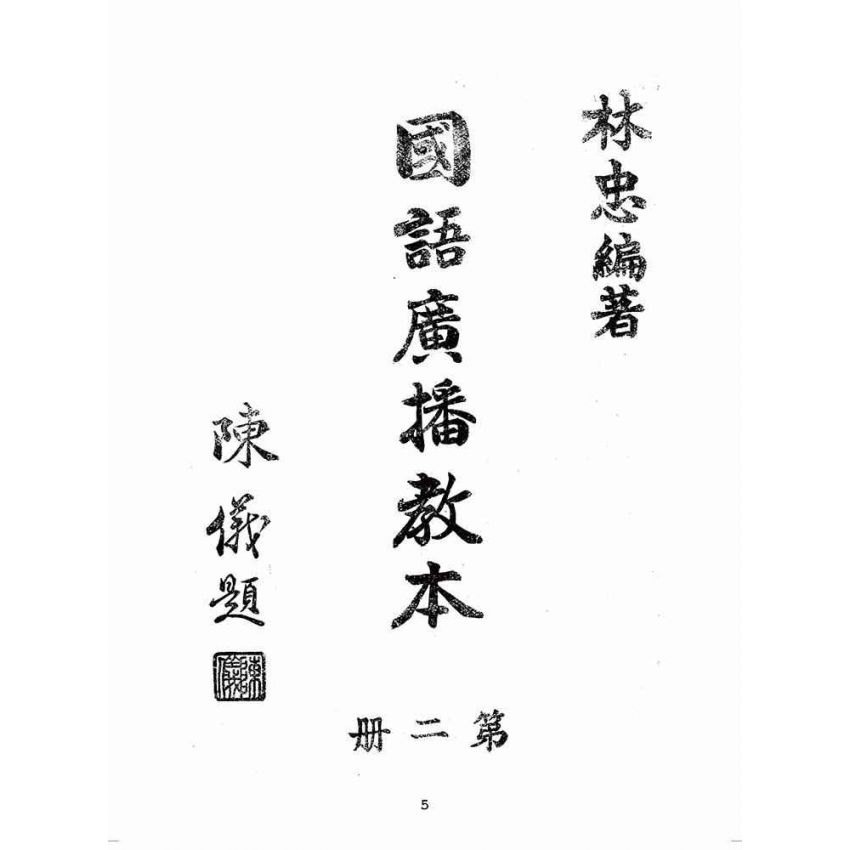 林忠編著
國語廣播教本
第二册
陳儀題
陳儀
5